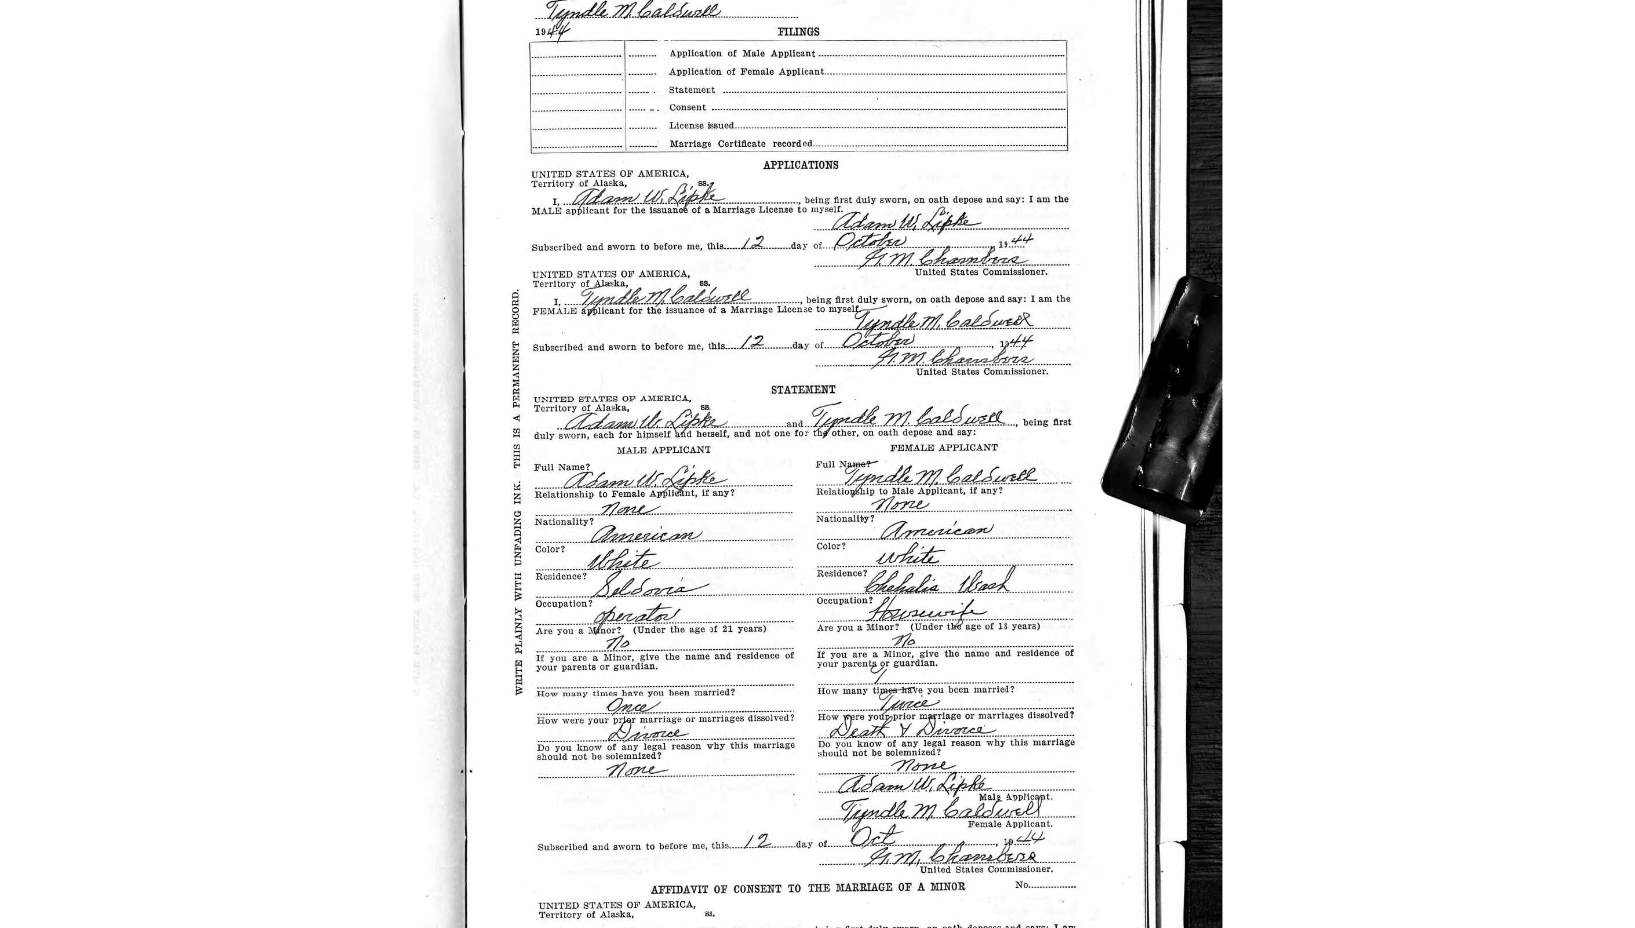 Tyndle M. Caldwell
1944
FILINGS
Application of Male Applicant
Application of Female Applicant
Statement
Consent
License issued
Marriage Certificate recorded
APPLICATIONS
UNITED STATES OF AMERICA,
Territory of Alaska, ss.
I, Adam W. Lipke, being first duly sworn, on oath depose and say: I am the
MALE applicant for the issuance of a Marriage License to myself.
Adam W. Lipke
Subscribed and sworn to before me, this 12 day of October, 1944
G. M. Chambers
United States Commissioner.
UNITED STATES OF AMERICA,
Territory of Alaska, ss.
I, Tyndle M. Caldwell, being first duly sworn, on oath depose and say: I am the
FEMALE applicant for the issuance of a Marriage License to myself
Tyndle M. Caldwell
Subscribed and sworn to before me, this 12 day of October, 1944
G. M. Chambers
United States Commissioner.
WRITE PLAINLY WITH UNFADING INK. THIS IS A PERMANENT RECORD.
STATEMENT
UNITED STATES OF AMERICA,
Territory of Alaska, ss.
Adam W. Lipke and Tyndle M Caldwell, being first
duly sworn, each for himself and herself, and not one for the other, on oath depose and say:
MALE APPLICANT
Full Name?
Adam W. Lipke
Relationship to Female Applicant, if any?
None
Nationality?
American
Color?
White
Residence?
Seldovia
Occupation?
operator
Are you a Minor? (Under the age of 21 years)
No
If you are a Minor, give the name and residence of
your parents or guardian.
How many times have you been married?
Once
How were your prior marriage or marriages dissolved?
Divorce
Do you know of any legal reason why this marriage
should not be solemnized?
None
FEMALE APPLICANT
Full Name?
Tyndle M. Caldwell
Relationship to Male Applicant, if any?
None
Nationality?
American
Color?
White
Residence?
Chehalis Wash
Occupation?
Housewife
Are you a Minor? (Under the age of 18 years)
No
If you are a Minor, give the name and residence of
your parents or guardian.
How many times have you been married?
Twice
How were your prior marriage or marriages dissolved?
Death & Divorce
Do you know of any legal reason why this marriage
should not be solemnized?
None
Adam W. Lipke
Male Applicant.
Tyndle M Caldwell
Female Applicant.
Subscribed and sworn to before me, this 12 day of Oct, 1944
G. M. Chambers
United States Commissioner.
AFFIDAVIT OF CONSENT TO THE MARRIAGE OF A MINOR No.
UNITED STATES OF AMERICA,
Territory of Alaska, ss.
being first duly sworn, on oath deposes and says: I am